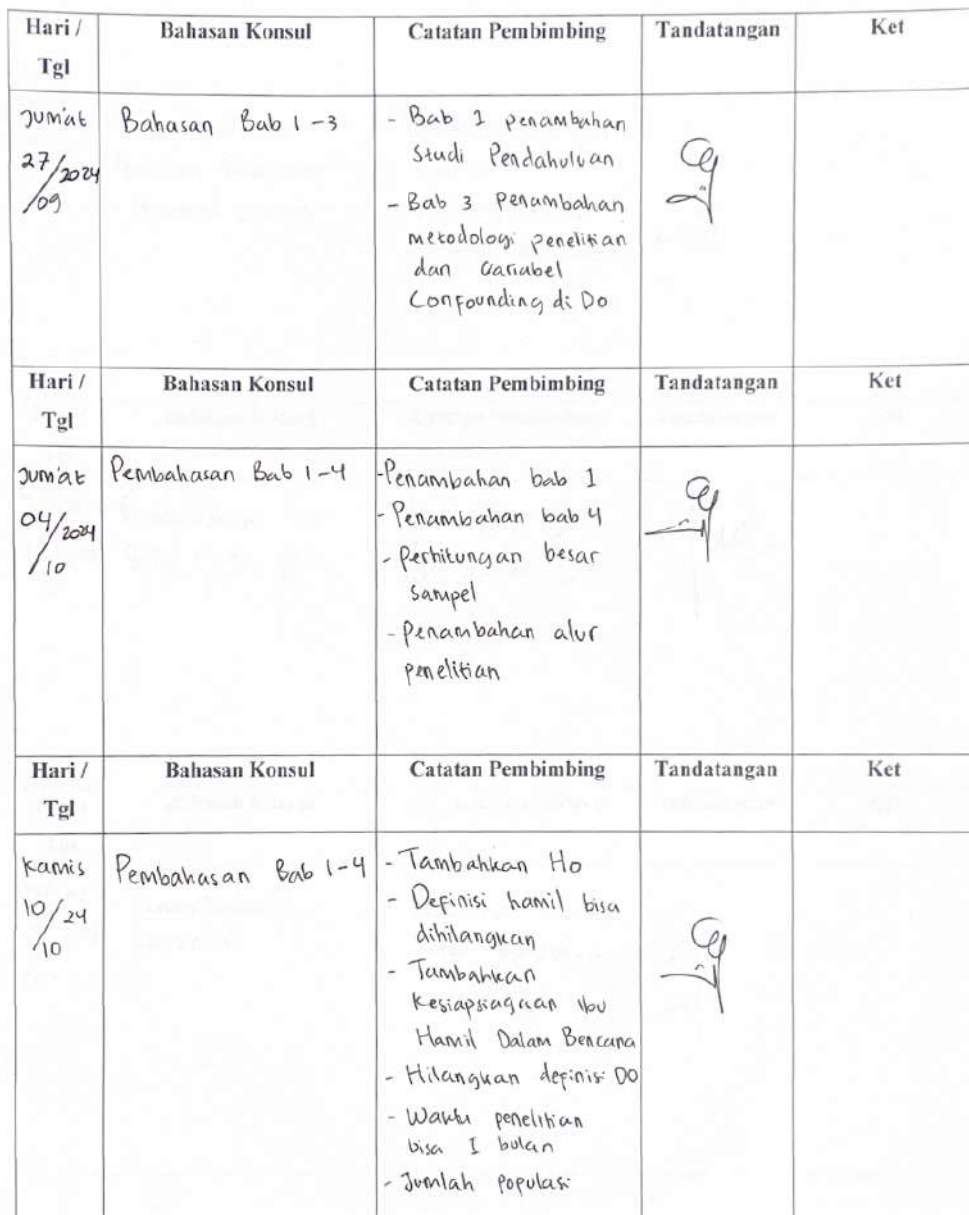 Hari / Bahasan Konsul Catatan Pembimbing Tandatangan Ket
Tgl
Jum'at Bahasan Bab 1-3 - Bab 1 penambahan
27/09/2024 Studi Pendahuluan
- Bab 3 Penambahan
metodologi penelitian
dan variabel
Confounding di Do
Hari / Bahasan Konsul Catatan Pembimbing Tandatangan Ket
Tgl
Jum'at Pembahasan Bab 1-4 - Penambahan bab 1
04/10/2024 - Penambahan bab 4
- Perhitungan besar
sampel
- Penambahan alur
penelitian
Hari / Bahasan Konsul Catatan Pembimbing Tandatangan Ket
Tgl
Kamis Pembahasan Bab 1-4 - Tambahkan Ho
10/10/24 - Definisi hamil bisa
dihilangkan
- Tambahkan
Kesiapsiagaan ibu
Hamil Dalam Bencana
- Hilangkan definisi DO
- Waktu penelitian
bisa 1 bulan
- Jumlah Populasi